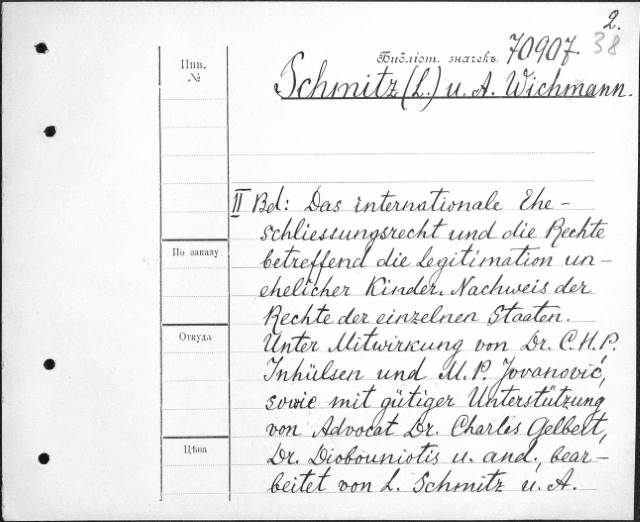 2.
Библіот. значекъ. 70907. 38
Инв.
№
Schmitz (L.) u. A. Wichmann.
II Bd: Das internationale Ehe-
schliessungsrecht und die Rechte
По заказу
betreffend die Legitimation un-
ehelicher Kinder. Nachweis der
Rechte der einzelnen Staaten.
Откуда
Unter Mitwirkung von Dr. C. H. P.
Inhülsen und M. P. Jovanović,
sowie mit gütiger Unterstützung
von Advocat Dr. Charles Gelbert,
Цѣна
Dr. Diobouniotis u. and., bear-
beitet von L. Schmitz u. A.